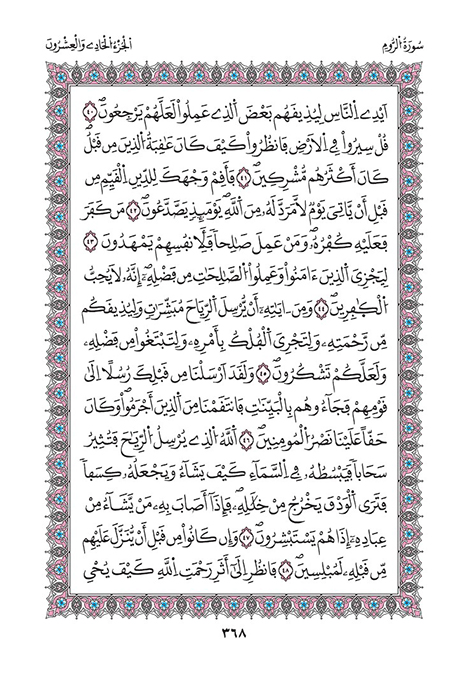 سُورَةُ الرُّومِ الْجُزْءُ الْحَادِي وَالْعِشْرُونَ
أَيْدِے اِ۬لنَّاسِ لِيُذِيقَهُم بَعْضَ اَ۬لذِے عَمِلُواْ لَعَلَّهُمْ يَرْجِعُونَۖ ٤٠
قُلْ سِيرُواْ فِے اِ۬لَارْضِ فَانظُرُواْ كَيْفَ كَانَ عَٰقِبَةُ اُ۬لذِينَ مِن قَبْلُۖ
كَانَ أَكْثَرُهُم مُّشْرِكِينَۖ ٤١ فَأَقِمْ وَجْهَكَ لِلدِّينِ اِ۬لْقَيِّمِ مِن
قَبْلِ أَنْ يَّاتِيَ يَوْمٞ لَّا مَرَدَّ لَهُۥ مِنَ اَ۬للَّهِۖ يَوْمَئِذٖ يَصَّدَّعُونَۖ ٤٢ مَن كَفَرَ
فَعَلَيْهِ كُفْرُهُۥۖ وَمَنْ عَمِلَ صَٰلِحاٗ فَلِأَنفُسِهِمْ يَمْهَدُونَ ٤٣
لِيَجْزِيَ اَ۬لذِينَ ءَامَنُواْ وَعَمِلُواْ اُ۬لصَّٰلِحَٰتِ مِن فَضْلِهِۦٓۖ إِنَّهُۥ لَا يُحِبُّ
اُ۬لْكَٰفِرِينَۖ ٤٤ وَمِنَ اٰيَٰتِهِۦٓ أَنْ يُّرْسِلَ اَ۬لرِّيَاحَ مُبَشِّرَٰتٖ وَلِيُذِيقَكُم
مِّن رَّحْمَتِهِۦ وَلِتَجْرِيَ اَ۬لْفُلْكُ بِأَمْرِهِۦ وَلِتَبْتَغُواْ مِن فَضْلِهِۦ
وَلَعَلَّكُمْ تَشْكُرُونَۖ ٤٥ وَلَقَدَ اَرْسَلْنَا مِن قَبْلِكَ رُسُلاً اِلَىٰ
قَوْمِهِمْ فَجَآءُوهُم بِالْبَيِّنَٰتِ فَانتَقَمْنَا مِنَ اَ۬لذِينَ أَجْرَمُواْۖ وَكَانَ
حَقّاً عَلَيْنَا نَصْرُ اُ۬لْمُومِنِينَۖ ٤٦ اَ۬للَّهُ اُ۬لذِے يُرْسِلُ اُ۬لرِّيَٰحَ فَتُثِيرُ
سَحَاباٗ فَيَبْسُطُهُۥ فِے اِ۬لسَّمَآءِ كَيْفَ يَشَآءُ وَيَجْعَلُهُۥ كِسَفاٗ
فَتَرَى اَ۬لْوَدْقَ يَخْرُجُ مِنْ خِلَٰلِهِۦۖ فَإِذَآ أَصَابَ بِهِۦ مَنْ يَّشَآءُ مِنْ
عِبَادِهِۦٓ إِذَا هُمْ يَسْتَبْشِرُونَۖ ٤٧ وَإِن كَانُواْ مِن قَبْلِ أَنْ يُّنَزَّلَ عَلَيْهِم
مِّن قَبْلِهِۦ لَمُبْلِسِينَۖ ٤٨ فَانظُرِ اِلَىٰٓ أَثَرِ رَحْمَتِ اِ۬للَّهِ كَيْفَ يُحْيِ
٣٦٨